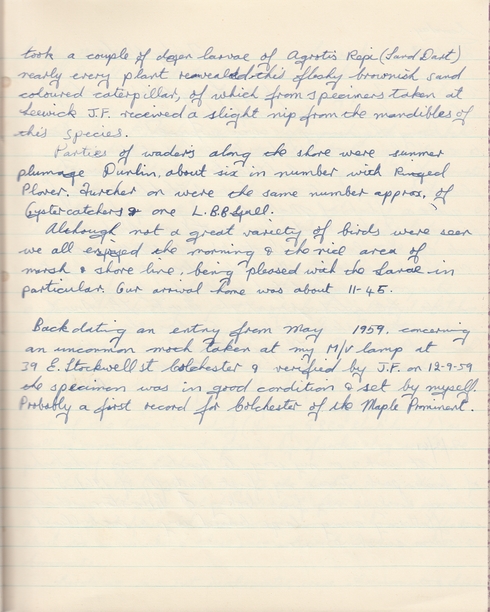 took a couple of dozen larvae of Agrotis Repi (Sand Dart)
nearly every plant revealed this fleshy brownish sand
coloured caterpillar, of which from specimens taken at
Leewick J.F. received a slight nip from the mandibles of
this species.
Parties of waders along the shore were summer
plumage Dunlin, about six in number with Ringed
Plover. Further on were the same number approx. of
Oystercatchers & one L.B.B. Gull.
Although not a great variety of birds were seen
we all enjoyed the morning & the nice area of
marsh & shore line, being pleased with the larvae in
particular. Our arrival home was about 11-45.
Back dating an entry from May 1959. concerning
an uncommon moth taken at my M/V lamp at
39 E. Stockwell st Colchester & verified by J.F. on 12-9-59
the specimen was in good condition & set by myself.
Probably a first record for Colchester of the Maple Prominent.